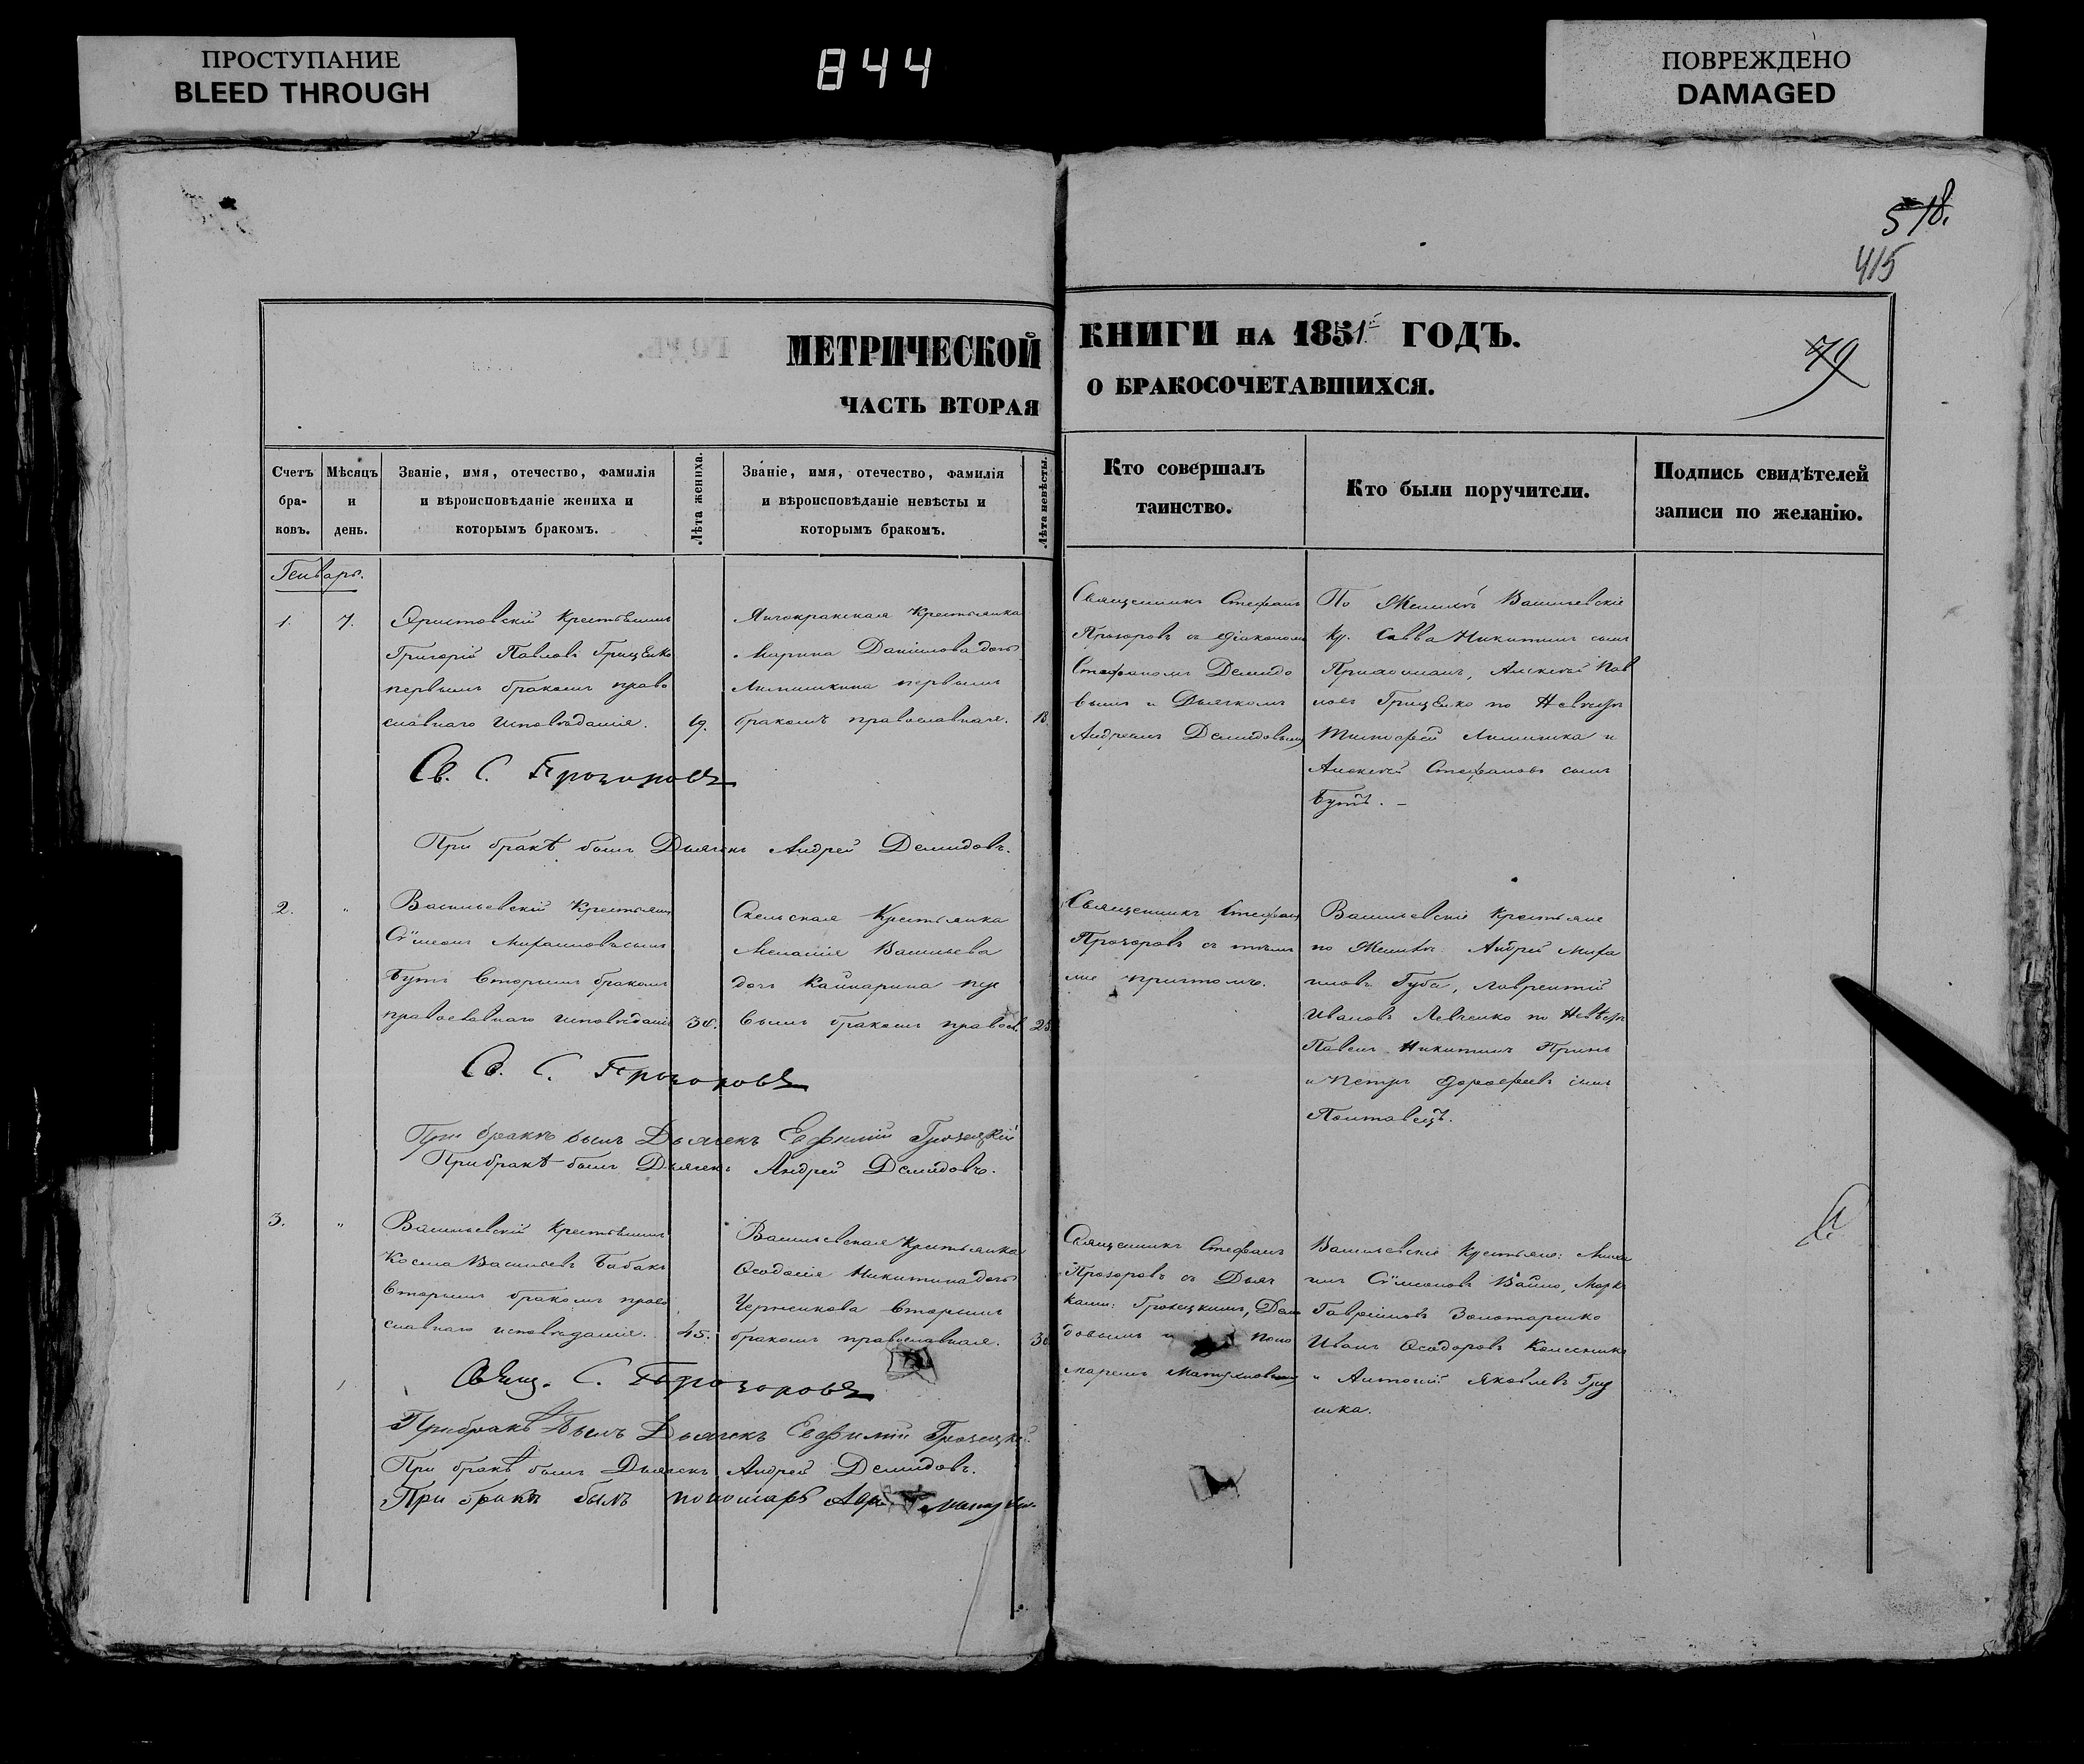 ПРОСТУПАНИЕ
BLEED THROUGH
844
ПОВРЕЖДЕНО
DAMAGED
518.
415
79
МЕТРИЧЕСКОЙ
ЧАСТЬ ВТОРАЯ
КНИГИ НА 1851 ГОДЪ.
О БРАКОСОЧЕТАВШИХСЯ.
Счетъ бра-ковъ.
Мѣсяцъ и день.
Званіе, имя, отечество, фамилія
и вѣроисповѣданіе жениха и
которымъ бракомъ.
Лѣта жениха.
Званіе, имя, отечество, фамилія
и вѣроисповѣданіе невѣсты и
которымъ бракомъ.
Лѣта невѣсты.
Кто совершалъ
таинство.
Кто были поручители.
Подпись свидѣтелей
записи по желанію.
Генварь.
1. 7.
Крестьянинъ
Григорій Павловъ Гриценко
первымъ бракомъ право
славнаго исповѣданія. 19.
Крестьянка
Марина Даніилова дочь
первымъ
бракомъ православная. 18.
Священникъ Стефанъ
Прозоровъ съ діакономъ
Стефаномъ Демидо
вымъ и Дьячкомъ
Андреемъ Демидовымъ
По Женихѣ Васильевскіе
Кр. Савва Никитинъ сынъ
Алексѣй Пав
ловъ Гриценко по Невѣстѣ
Тимофей и
Алексѣй Стефановъ сынъ
Бутъ. –
Св. С. Прозоровъ
При бракѣ былъ Дьячекъ Андрей Демидовъ.
2. "
Васильевскій Крестьянинъ
Сѵмеонъ Михаиловъ сынъ
Бутъ вторымъ бракомъ
православнаго исповѣданія 30.
Скельская Крестьянка
Меланія Васильева
дочь пер
вымъ бракомъ правосл.
Священникъ Стефанъ
Прозоровъ съ тѣмъ
же причтомъ.
Васильевскіе Крестьяне
по Женихѣ: Андрей Миха
иловъ Губа, Лаврентій
Ивановъ Левченко по Невѣстѣ
Павелъ Никитинъ
и Петръ Дорофеевъ сынъ
Полтавецъ.
Св. С. Прозоровъ
При бракѣ былъ Дьячекъ Евфимій
При бракѣ былъ Дьячекъ Андрей Демидовъ.
3. "
Васильевскій Крестьянинъ
Косма Васильевъ Бабакъ
вторымъ бракомъ право
славнаго исповѣданія. 45.
Васильевская Крестьянка
Ѳеодосія Никитина дочь
вторымъ
бракомъ православная.
Священникъ Стефанъ
Прозоровъ съ Дьяч
ками: Деми
довымъ и поно
маремъ
Васильевскіе Крестьяне: Миха
илъ Сѵмеоновъ Марко
Гавріиловъ Золотаренко
Иванъ Ѳеодоровъ Колесникъ
и Антоній Яковлевъ
Свящ. С. Прозоровъ
При бракѣ былъ Дьячекъ Евфимій
При бракѣ былъ Дьячекъ Андрей Демидовъ.
При бракѣ былъ пономарь